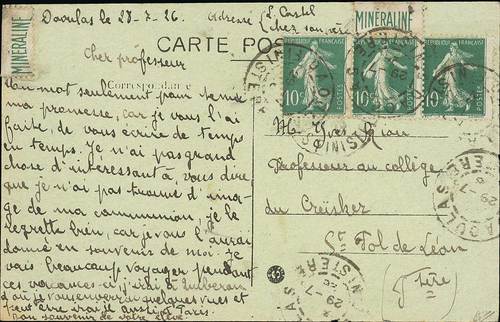 Daoulas le 28-7-26. Adresse L. Castel
chez
MINÉRALINE
MINÉRALINE
CARTE POSTALE
cher professeur
Correspondance
RÉPUBLIQUE FRANÇAISE
10c POSTES
RÉPUBLIQUE FRANÇAISE
10c POSTES
RÉPUBLIQUE FRANÇAISE
10c POSTES
Un mot seulement pour tenir
ma promesse, car je vous l'ai
faite, de vous écrire de temps
en temps. Je n'ai pas grand
chose d'intéressant à vous dire
que je n'ai pas trouvé d'ima
ge de ma communion, je le
regrette bien, car je vous l'aurai
donné en souvenir de moi. Je
vais beaucoup voyager pendant
ces vacances-ci j'irai à
d'où je vous enverrai quelques vues et
peut être irai-je aussi à Paris.
bon souvenir de votre élève
Mr Yves
Professeur au collège
du Creïsker
St Pol de Léon
(Ftère)
DAOULAS
FINISTERE
29-7
26